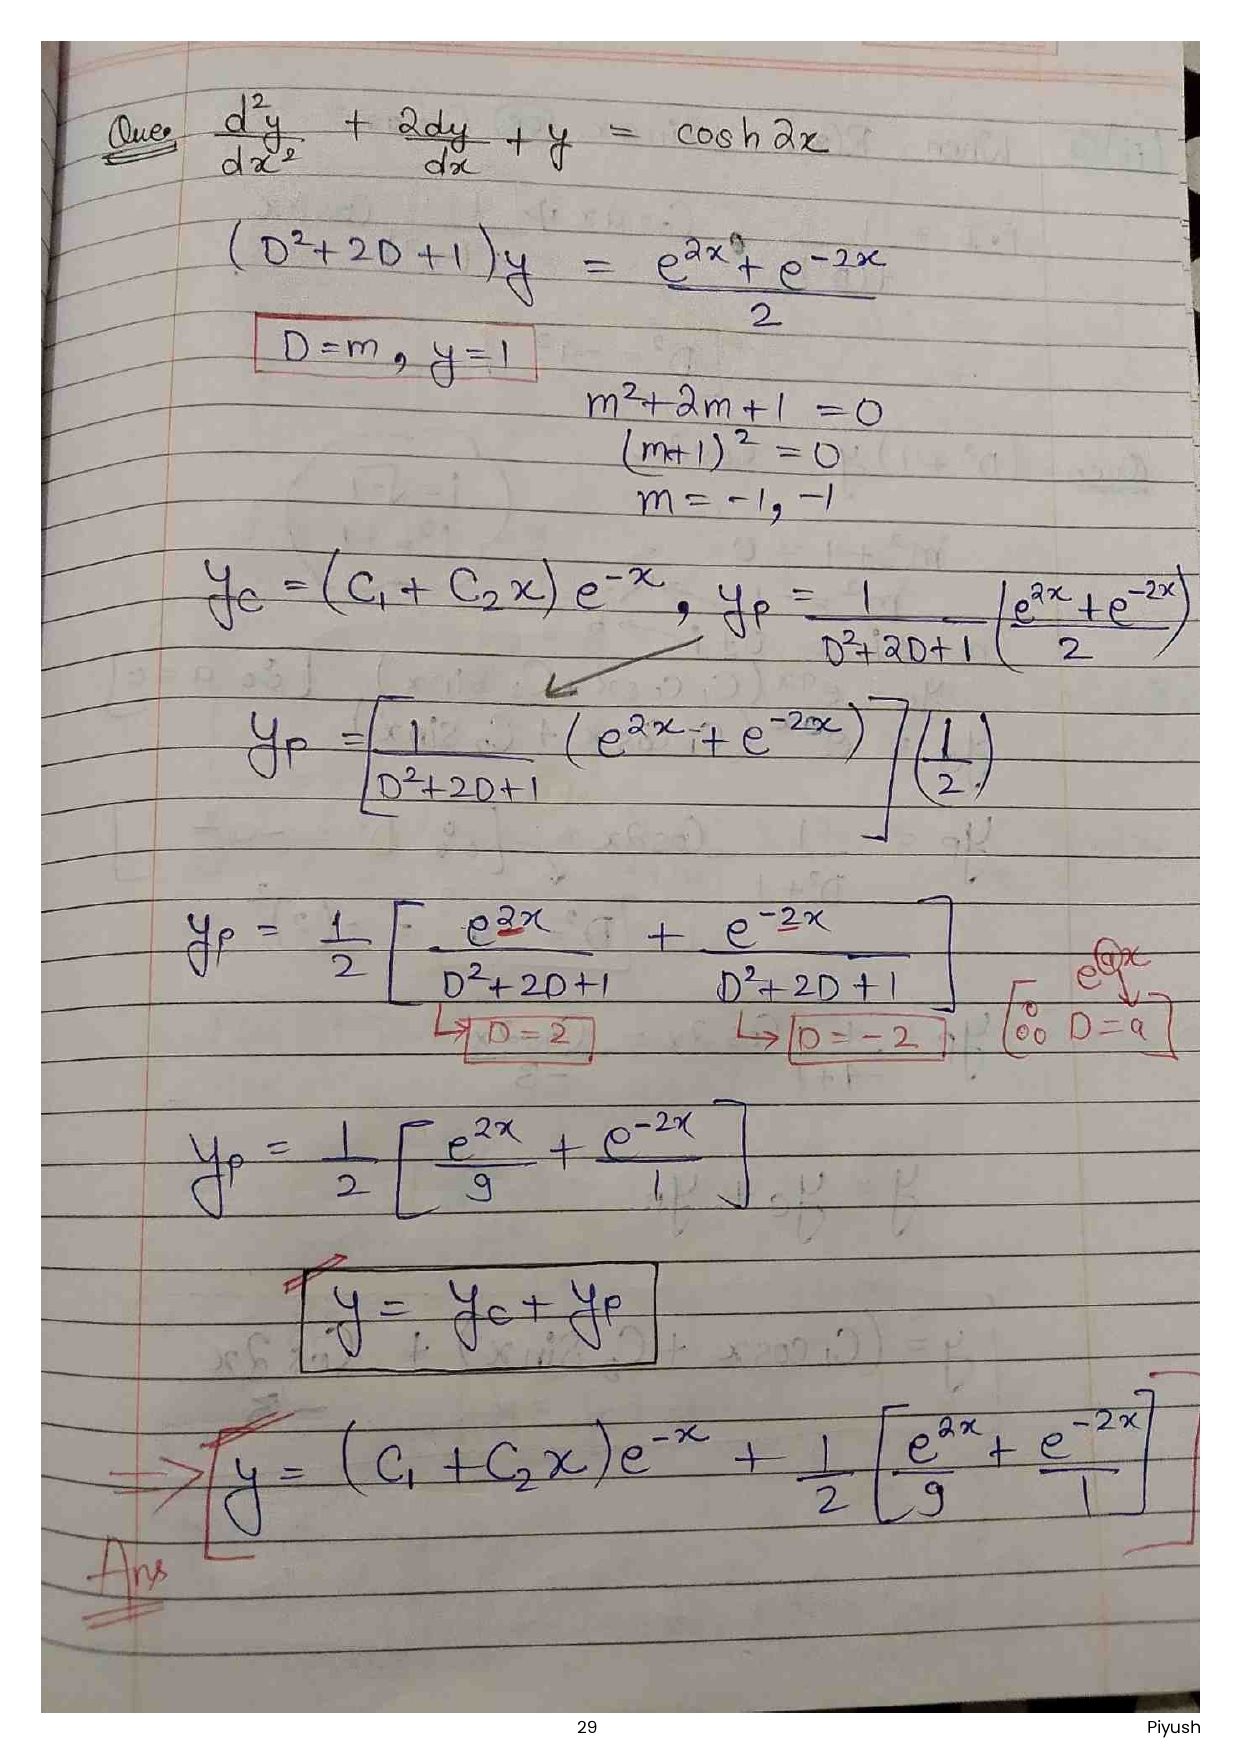 Que. d²y/dx² + 2dy/dx + y = cosh 2x
(D²+2D+1)y = (e^{2x} + e^{-2x})/2
D=m, y=1
m²+2m+1 = 0
(m+1)² = 0
m = -1, -1
y_c = (C₁ + C₂x) e^{-x}, y_p = 1/(D²+2D+1) ((e^{2x} + e^{-2x})/2)
y_p = [1/(D²+2D+1) (e^{2x} + e^{-2x})] (1/2)
y_p = 1/2 [e^{2x}/(D²+2D+1) + e^{-2x}/(D²+2D+1)]
D=2 D=-2 [∵ e^{ax} D=a]
y_p = 1/2 [e^{2x}/9 + e^{-2x}/1]
y = y_c + y_p
⇒ y = (C₁ + C₂x)e^{-x} + 1/2 [e^{2x}/9 + e^{-2x}/1]
Ans
29 Piyush